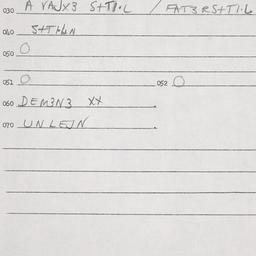 030 A VAJX3 S+TI.L / FAT3RS+TI.L
040 S+THIN
050 O
051 O 052 O
060 DEM3N3 XX
070 UNLEJN